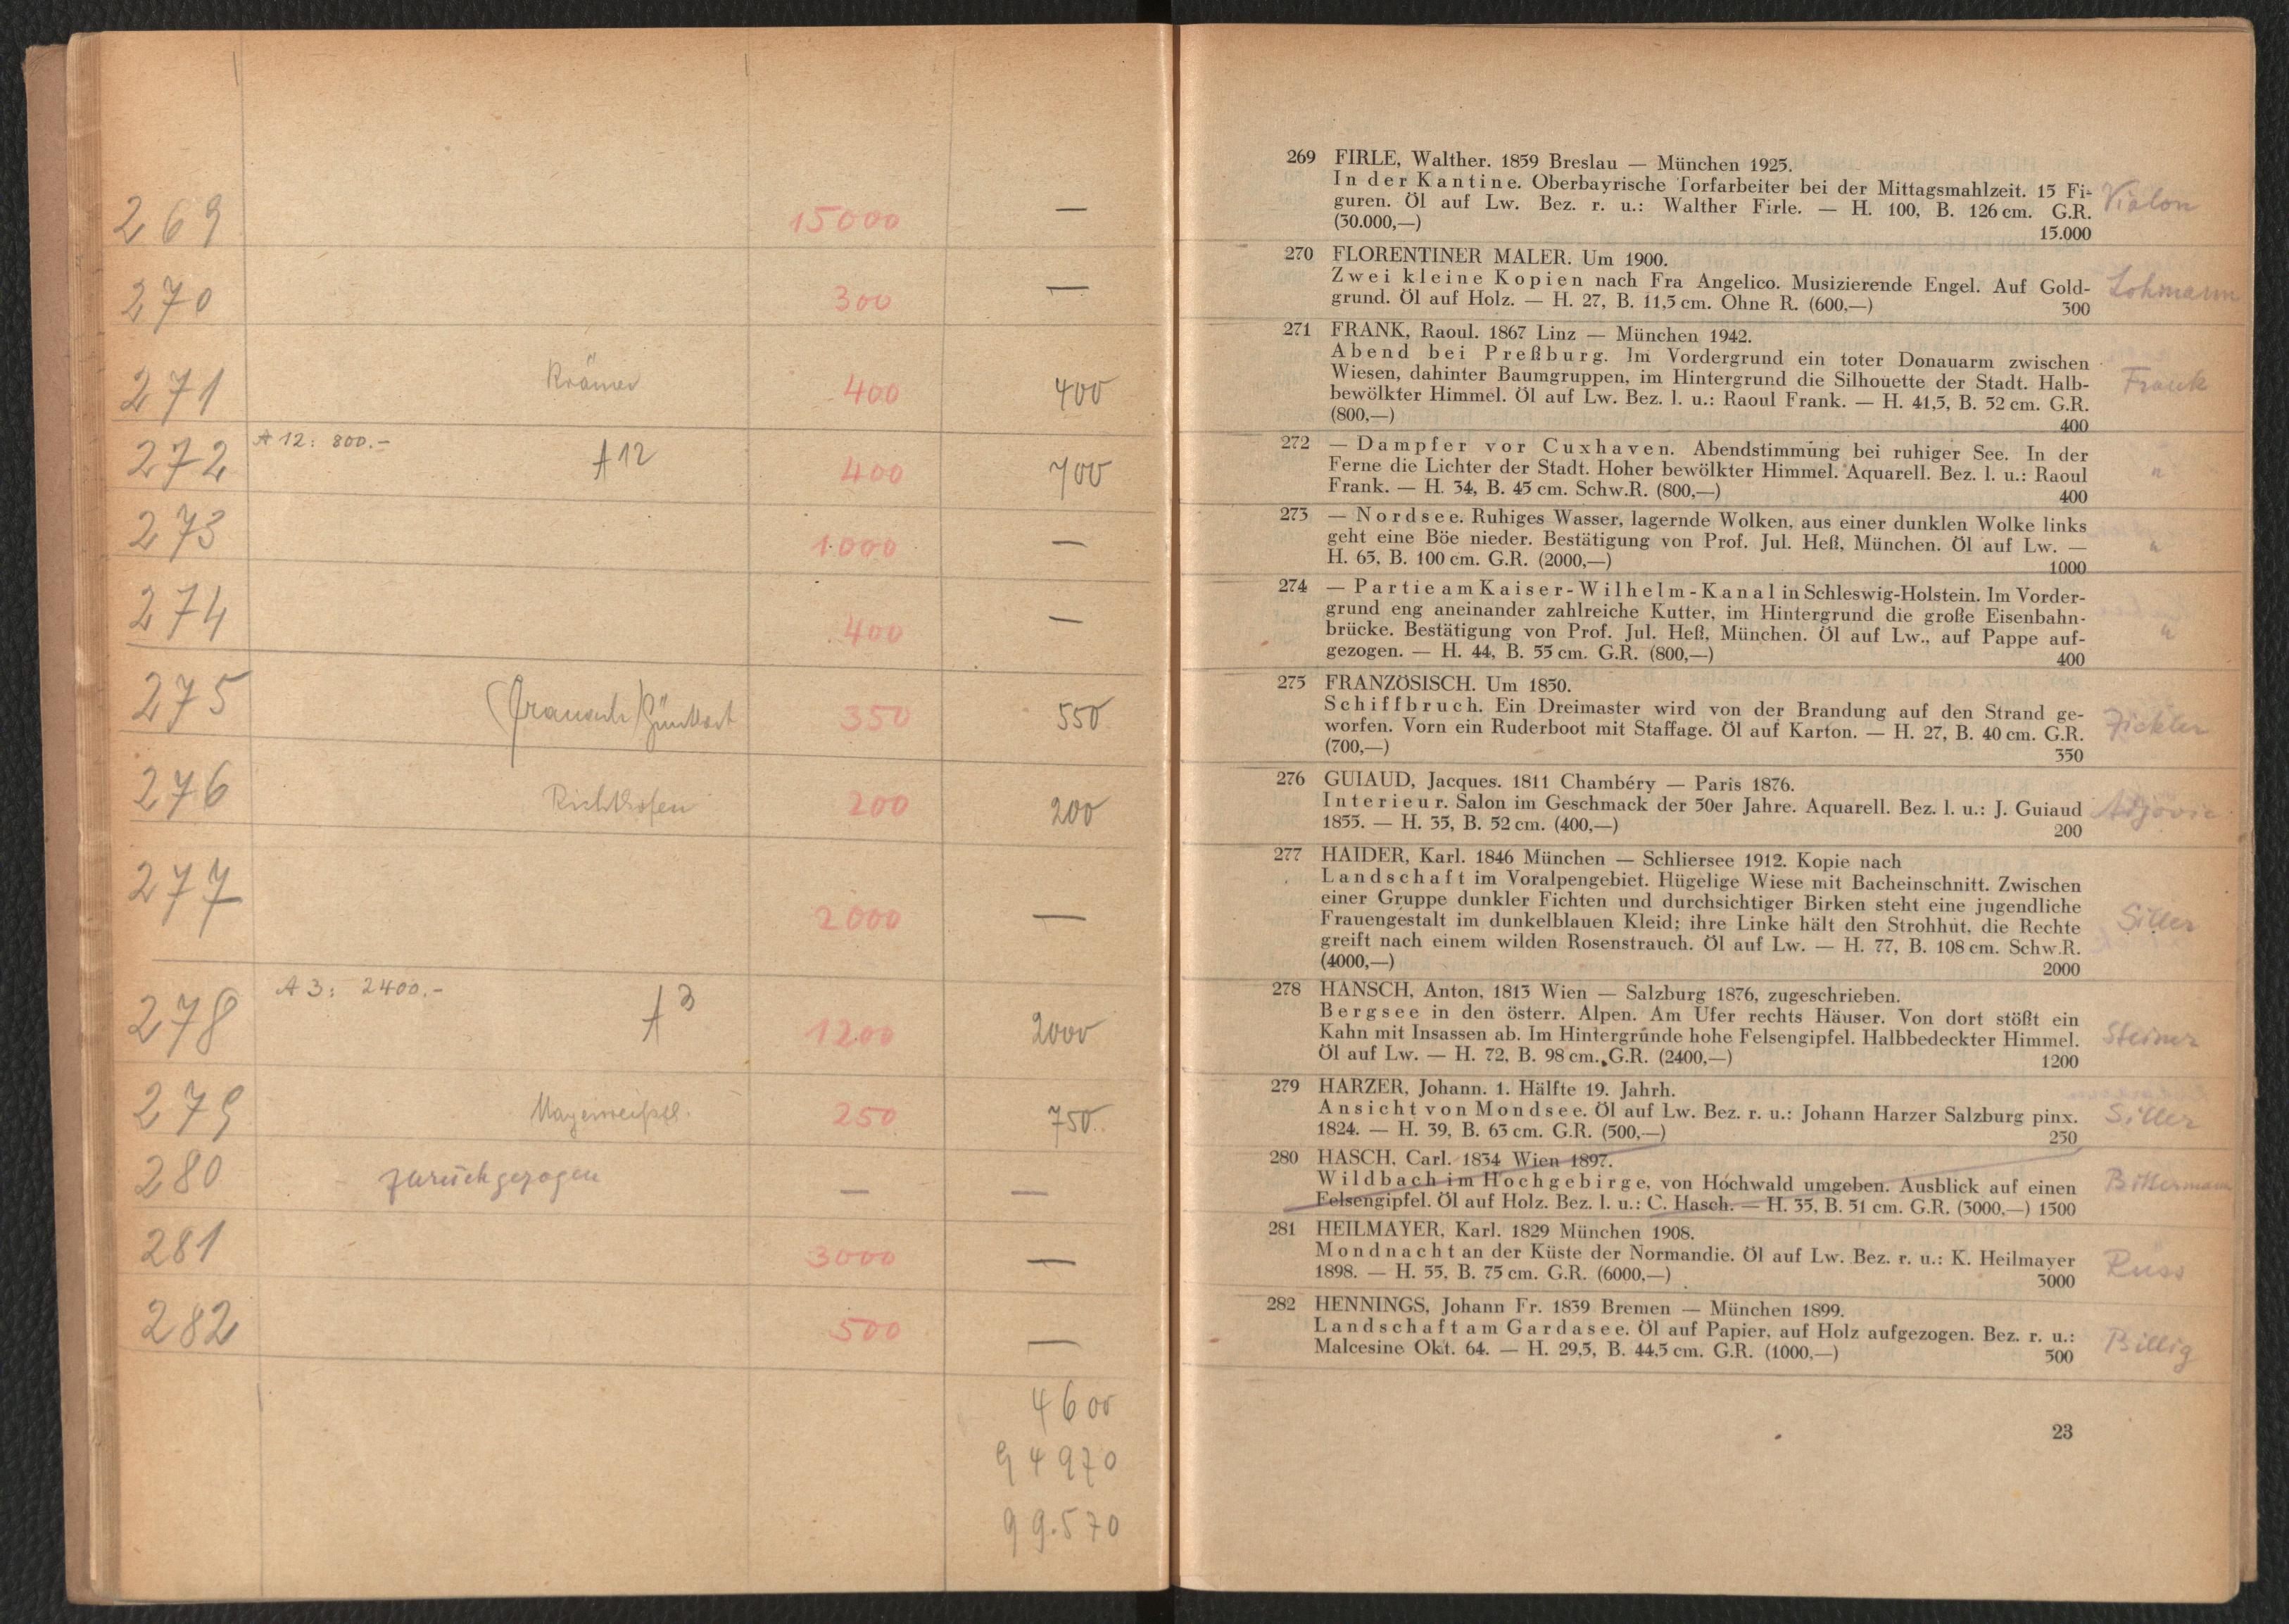 269 15000 —
270 300 —
271 Krämer 400 400
A 12: 800.-
272 A 12 400 700
273 1000 —
274 400 —
275 350 550
276 Richthofen 200 200
277 2000 —
A 3: 2400.-
278 A 3 1200 2000
279 250 750
280 zurückgezogen — —
281 3000 —
282 500 —
4600
94970
99.570
269 FIRLE, Walther. 1859 Breslau — München 1925.
In der Kantine. Oberbayrische Torfarbeiter bei der Mittagsmahlzeit. 15 Fi-
guren. Öl auf Lw. Bez. r. u.: Walther Firle. — H. 100, B. 126 cm. G.R. Vialon
(30.000,—) 15.000
270 FLORENTINER MALER. Um 1900.
Zwei kleine Kopien nach Fra Angelico. Musizierende Engel. Auf Gold- Lohmann
grund. Öl auf Holz. — H. 27, B. 11,5 cm. Ohne R. (600,—) 300
271 FRANK, Raoul. 1867 Linz — München 1942.
Abend bei Preßburg. Im Vordergrund ein toter Donauarm zwischen
Wiesen, dahinter Baumgruppen, im Hintergrund die Silhouette der Stadt. Halb- Frank
bewölkter Himmel. Öl auf Lw. Bez. l. u.: Raoul Frank. — H. 41,5, B. 52 cm. G.R.
(800,—) 400
272 — Dampfer vor Cuxhaven. Abendstimmung bei ruhiger See. In der
Ferne die Lichter der Stadt. Hoher bewölkter Himmel. Aquarell. Bez. l. u.: Raoul "
Frank. — H. 34, B. 45 cm. Schw.R. (800,—) 400
273 — Nordsee. Ruhiges Wasser, lagernde Wolken, aus einer dunklen Wolke links
geht eine Böe nieder. Bestätigung von Prof. Jul. Heß, München. Öl auf Lw. — "
H. 65, B. 100 cm. G.R. (2000,—) 1000
274 — Partie am Kaiser-Wilhelm-Kanal in Schleswig-Holstein. Im Vorder-
grund eng aneinander zahlreiche Kutter, im Hintergrund die große Eisenbahn-
brücke. Bestätigung von Prof. Jul. Heß, München. Öl auf Lw., auf Pappe auf- "
gezogen. — H. 44, B. 55 cm. G.R. (800,—) 400
275 FRANZÖSISCH. Um 1850.
Schiffbruch. Ein Dreimaster wird von der Brandung auf den Strand ge-
worfen. Vorn ein Ruderboot mit Staffage. Öl auf Karton. — H. 27, B. 40 cm. G.R. Fickler
(700,—) 350
276 GUIAUD, Jacques. 1811 Chambéry — Paris 1876.
Interieur. Salon im Geschmack der 50er Jahre. Aquarell. Bez. l. u.: J. Guiaud
1855. — H. 35, B. 52 cm. (400,—) 200
277 HAIDER, Karl. 1846 München — Schliersee 1912. Kopie nach
Landschaft im Voralpengebiet. Hügelige Wiese mit Bacheinschnitt. Zwischen
einer Gruppe dunkler Fichten und durchsichtiger Birken steht eine jugendliche
Frauengestalt im dunkelblauen Kleid; ihre Linke hält den Strohhut, die Rechte Siller
greift nach einem wilden Rosenstrauch. Öl auf Lw. — H. 77, B. 108 cm. Schw.R.
(4000,—) 2000
278 HANSCH, Anton, 1813 Wien — Salzburg 1876, zugeschrieben.
Bergsee in den österr. Alpen. Am Ufer rechts Häuser. Von dort stößt ein
Kahn mit Insassen ab. Im Hintergrunde hohe Felsengipfel. Halbbedeckter Himmel. Steiner
Öl auf Lw. — H. 72, B. 98 cm. G.R. (2400,—) 1200
279 HARZER, Johann. 1. Hälfte 19. Jahrh.
Ansicht von Mondsee. Öl auf Lw. Bez. r. u.: Johann Harzer Salzburg pinx. Siller
1824. — H. 39, B. 63 cm. G.R. (500,—) 250
280 HASCH, Carl. 1834 Wien 1897.
Wildbach im Hochgebirge, von Hochwald umgeben. Ausblick auf einen Bittermann
Felsengipfel. Öl auf Holz. Bez. l. u.: C. Hasch. — H. 35, B. 51 cm. G.R. (3000,—) 1500
281 HEILMAYER, Karl. 1829 München 1908.
Mondnacht an der Küste der Normandie. Öl auf Lw. Bez. r. u.: K. Heilmayer Russ
1898. — H. 55, B. 75 cm. G.R. (6000,—) 3000
282 HENNINGS, Johann Fr. 1839 Bremen — München 1899.
Landschaft am Gardasee. Öl auf Papier, auf Holz aufgezogen. Bez. r. u.: Billig
Malcesine Okt. 64. — H. 29,5, B. 44,5 cm. G.R. (1000,—) 500
23